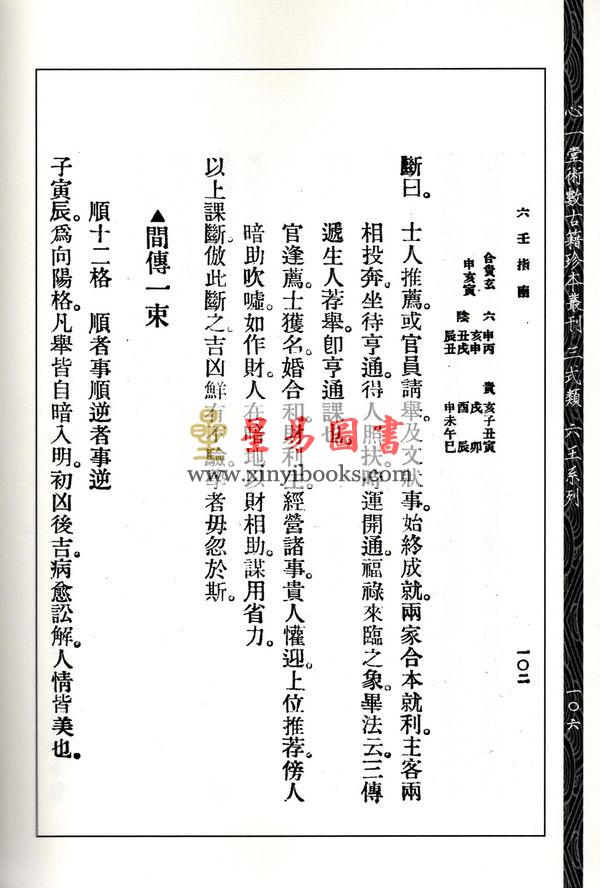 心一堂術數古籍珍本叢刊 三式類 六壬系列
一〇六
六壬指南
一〇二
合貴玄
申亥寅
六 申丙
亥申
陰 丑戌
辰丑
貴 亥子丑寅
戌 卯
酉 辰
申未午巳
斷曰。士人推薦或官員請舉及文狀事始終成就。兩家合本就利。主客兩
相投奔。坐待亨通。得人照扶。時運開通。福祿來臨之象。畢法云。三傳
遞生人荐舉。卽亨通課也。
官逢薦士獲名。婚合和。財利主經營諸事。貴人懽迎。上位推荐。傍人
暗助吹噓。如作財人在暗地以財相助。謀用省力。
以上課斷倣此斷之。吉凶鮮有不驗。學者毋忽於斯。
▲間傳一束
順十二格 順者事順逆者事逆
子寅辰。爲向陽格。凡舉皆自暗入明。初凶後吉。病愈訟解。人情皆美也。
星易圖書
www.xinyibooks.com